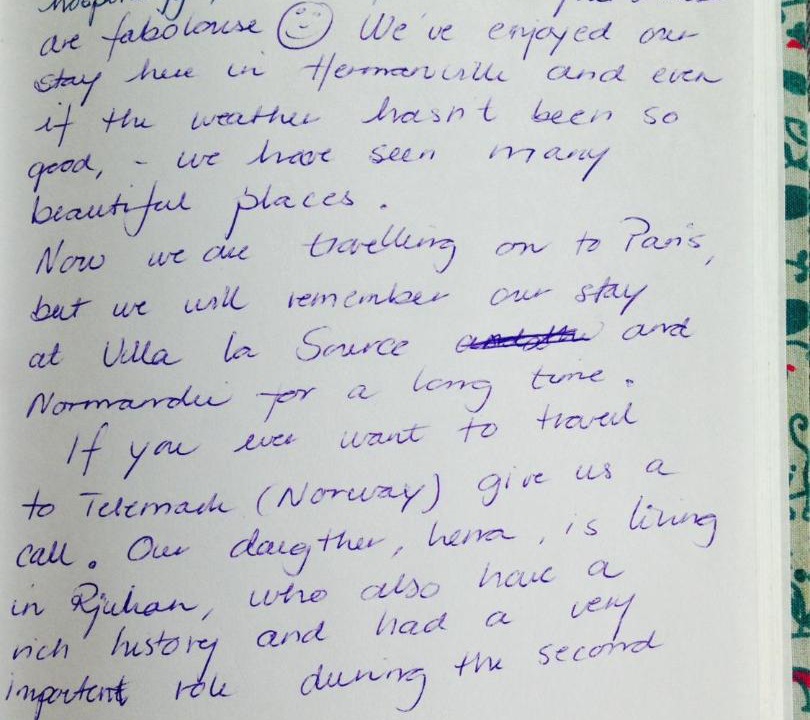 are fabolouse We've enjoyed our
stay here in Hermanville and even
if the weather hasn't been so
good, - we have seen many
beautiful places.
Now we are travelling on to Paris,
but we will remember our stay
at Villa la Source and
Normandie for a long time.
If you ever want to travel
to Telemark (Norway) give us a
call. Our daugther, , is living
in Rjukan, who also have a
rich history and had a very
important role during the second